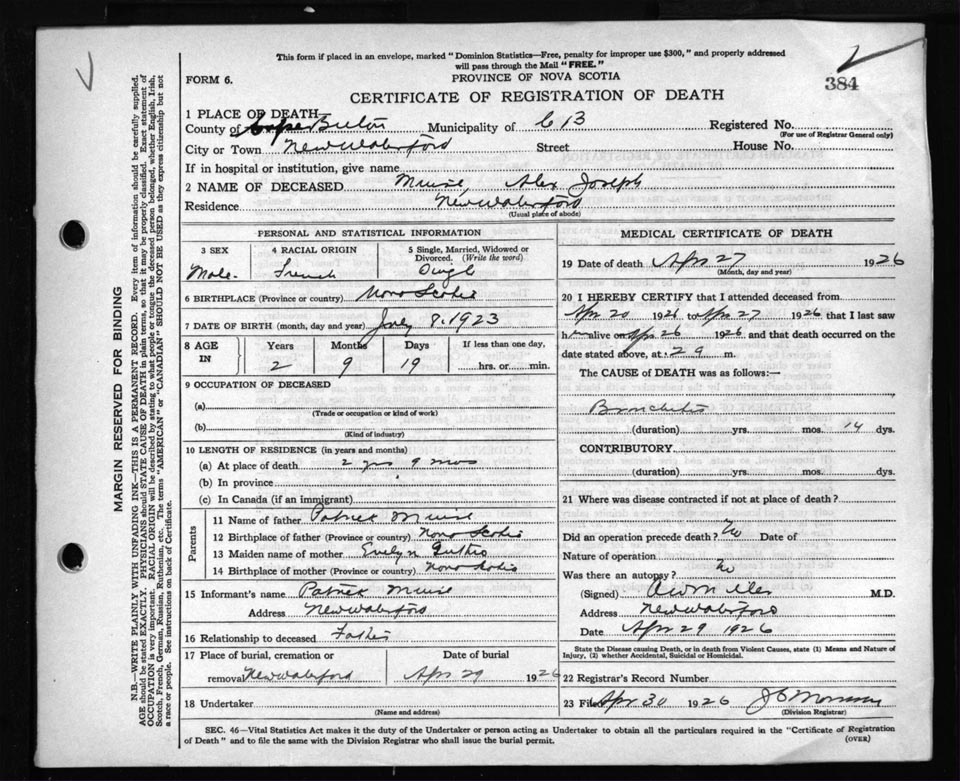 This form if placed in an envelope, marked "Dominion Statistics—Free, penalty for improper use $300," and properly addressed
will pass through the Mail "FREE."
FORM 6.
PROVINCE OF NOVA SCOTIA
384
CERTIFICATE OF REGISTRATION OF DEATH
1 PLACE OF DEATH—
County of Cape Breton Municipality of C B Registered No.
(For use of Registrar General only)
City or Town New Waterford Street House No.
If in hospital or institution, give name
2 NAME OF DECEASED Muise, Alex Joseph
Residence New Waterford
(Usual place of abode)
PERSONAL AND STATISTICAL INFORMATION
3 SEX 4 RACIAL ORIGIN 5 Single, Married, Widowed or
Divorced. (Write the word)
Male French Single
6 BIRTHPLACE (Province or country) Nova Scotia
7 DATE OF BIRTH (month, day and year) July 8. 1923
8 AGE IN Years Months Days If less than one day,
2 9 19 hrs. or min.
9 OCCUPATION OF DECEASED
(a)
(Trade or occupation or kind of work)
(b)
(Kind of industry)
10 LENGTH OF RESIDENCE (in years and months)
(a) At place of death 2 yrs 9 mos
(b) In province
(c) In Canada (if an immigrant)
Parents
11 Name of father Patrick Muise
12 Birthplace of father (Province or country) Nova Scotia
13 Maiden name of mother Evelyn
14 Birthplace of mother (Province or country) Nova Scotia
15 Informant's name Patrick Muise
Address New Waterford
16 Relationship to deceased Father
17 Place of burial, cremation or Date of burial
removal New Waterford Apr 29 1926
18 Undertaker
(Name and address)
MEDICAL CERTIFICATE OF DEATH
19 Date of death Apr 27 1926
(Month, day and year)
20 I HEREBY CERTIFY that I attended deceased from
Apr 20 1926 to Apr 27 1926 that I last saw
him alive on Apr 26 1926 and that death occurred on the
date stated above, at 2 a m.
The CAUSE of DEATH was as follows:—
Bronchitis
(duration) yrs. mos. 14 dys.
CONTRIBUTORY.
(duration) yrs. mos. dys.
21 Where was disease contracted if not at place of death?
Did an operation precede death? No Date of
Nature of operation
Was there an autopsy? No
(Signed) M.D.
Address New Waterford
Date Apr 29 1926
State the Disease causing Death, or in death from Violent Causes, state (1) Means and Nature of
Injury, (2) whether Accidental, Suicidal or Homicidal.
22 Registrar's Record Number
23 Filed Apr 30 1926
(Division Registrar)
SEC. 46—Vital Statistics Act makes it the duty of the Undertaker or person acting as Undertaker to obtain all the particulars required in the "Certificate of Registration
of Death" and to file the same with the Division Registrar who shall issue the burial permit. (OVER)
MARGIN RESERVED FOR BINDING
N.B.—WRITE PLAINLY WITH UNFADING INK—THIS IS A PERMANENT RECORD. Every item of information should be carefully supplied.
AGE should be stated EXACTLY. PHYSICIANS should STATE CAUSE OF DEATH in plain terms, so that it may be properly classified. Exact statement of
OCCUPATION is very important. RACIAL ORIGIN will be described by stating to what people or tongue the deceased person belonged, whether English, Irish,
Scotch, French, German, Russian, Ruthenian, etc. The terms "AMERICAN" or "CANADIAN" SHOULD NOT BE USED as they express citizenship but not
a race or people. See instructions on back of Certificate.